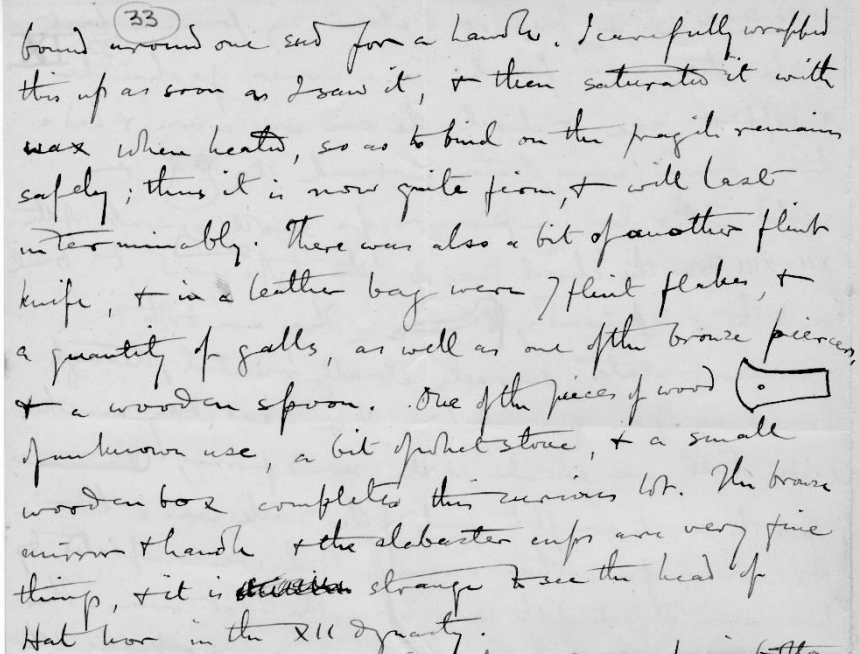 33
bound around one end for a handle. I carefully wrapped
this up as soon as I saw it, & then saturated it with
wax when heated, so as to bind on the fragile remains
safely; thus it is now quite firm, & will last
interminably. There was also a bit of another flint
knife, & in a leather bag were 7 flint flakes, &
a quantity of galls, as well as one of the bronze piercers,
& a wooden spoon. One of the pieces of wood
of unknown use, a bit of whetstone, & a small
wooden box completes this curious lot. The bronze
mirror & handle & the alabaster cups are very fine
things, & it is strange to see the head of
Hat hor in the XII dynasty.